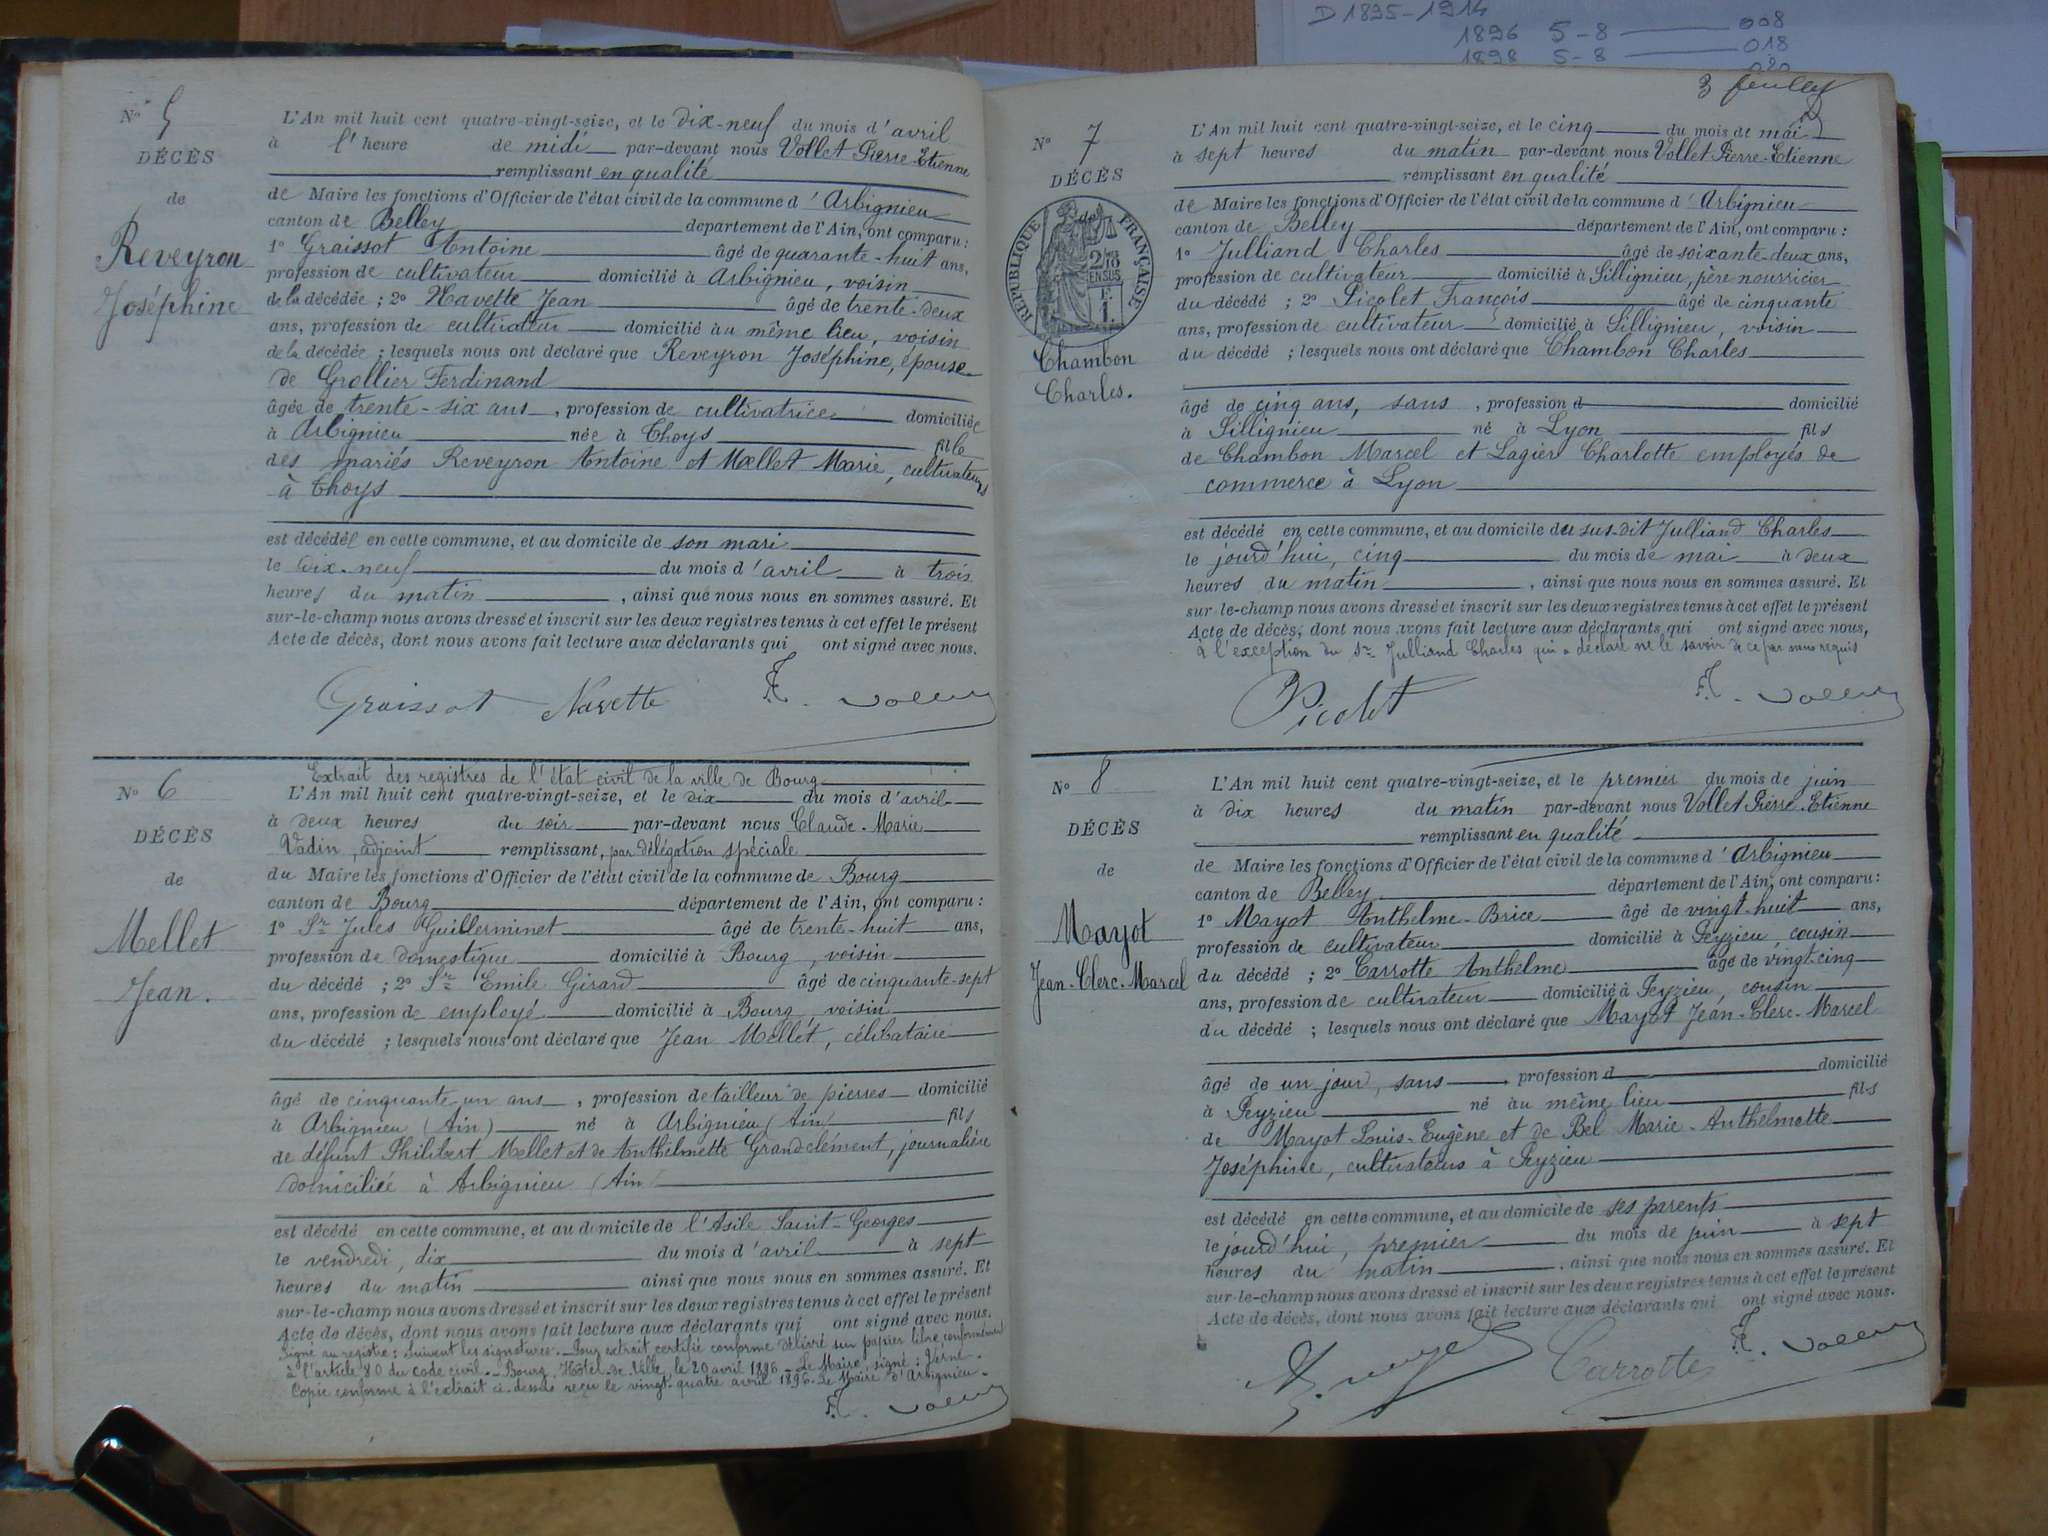 D 1895-1914
1896 5-8 — 008
1898 5-8 — 018
020
N° 5
DÉCÈS
de
Reveyron
Joséphine
L'An mil huit cent quatre-vingt-seize, et le dix-neuf du mois d'avril
à l'heure de midi par-devant nous Vollet Pierre-Etienne
remplissant en qualité
de Maire les fonctions d'Officier de l'état civil de la commune d'Arbignieu
canton de Belley département de l'Ain, ont comparu :
1° Graissot Antoine âgé de quarante-huit ans,
profession de cultivateur domicilié à Arbignieu, voisin
de la décédée ; 2° Navette Jean âgé de trente-deux
ans, profession de cultivateur domicilié au même lieu, voisin
de la décédée ; lesquels nous ont déclaré que Reveyron Joséphine, épouse
de Grollier Ferdinand
âgée de trente-six ans, profession de cultivatrice domiciliée
à Arbignieu née à Thoys fille
des mariés Reveyron Antoine et Mellet Marie, cultivateurs
à Thoys
est décédée en cette commune, et au domicile de son mari
le dix-neuf du mois d'avril à trois
heures du matin, ainsi que nous nous en sommes assuré. Et
sur-le-champ nous avons dressé et inscrit sur les deux registres tenus à cet effet le présent
Acte de décès, dont nous avons fait lecture aux déclarants qui ont signé avec nous.
Graissot Navette Vollet
N° 6
DÉCÈS
de
Mellet
Jean.
Extrait des registres de l'état civil de la ville de Bourg
L'An mil huit cent quatre-vingt-seize, et le dix du mois d'avril
à deux heures du soir par-devant nous Claude-Marie
Vadin, adjoint remplissant, par délégation spéciale
du Maire les fonctions d'Officier de l'état civil de la commune de Bourg
canton de Bourg département de l'Ain, ont comparu :
1° Sr Jules Guillerminet âgé de trente-huit ans,
profession de domestique domicilié à Bourg, voisin
du décédé ; 2° Sr Emile Girard âgé de cinquante-sept
ans, profession de employé domicilié à Bourg, voisin
du décédé ; lesquels nous ont déclaré que Jean Mellet, célibataire
âgé de cinquante-un ans, profession de tailleur de pierres domicilié
à Arbignieu (Ain) né à Arbignieu (Ain) fils
de défunt Philibert Mellet et de Anthelmette Grandclément, journalière
domiciliée à Arbignieu (Ain)
est décédé en cette commune, et au domicile de l'Asile Saint-Georges
le vendredi, dix du mois d'avril à sept
heures du matin ainsi que nous nous en sommes assuré. Et
sur-le-champ nous avons dressé et inscrit sur les deux registres tenus à cet effet le présent
Acte de décès, dont nous avons fait lecture aux déclarants qui ont signé avec nous.
Signé au registre : suivent les signatures. - Pour extrait certifié conforme délivré sur papier libre conformément
à l'article 80 du code civil. - Bourg, Hôtel-de-Ville, le 20 avril 1896 - Le Maire, signé : Verne.
Copie conforme à l'extrait ci-dessus reçu le vingt-quatre avril 1896. Le Maire d'Arbignieu.
Vollet
3 feuillet
N° 7
DÉCÈS
de
RÉPUBLIQUE FRANÇAISE
2/10
EN SUS
Chambon
Charles.
L'An mil huit cent quatre-vingt-seize, et le cinq du mois de mai
à sept heures du matin par-devant nous Vollet Pierre-Etienne
remplissant en qualité
de Maire les fonctions d'Officier de l'état civil de la commune d'Arbignieu
canton de Belley département de l'Ain, ont comparu :
1° Julliand Charles âgé de soixante-deux ans,
profession de cultivateur domicilié à Sillignieu, père nourricier
du décédé ; 2° Picolet François âgé de cinquante
ans, profession de cultivateur domicilié à Sillignieu, voisin
du décédé ; lesquels nous ont déclaré que Chambon Charles
âgé de cinq ans, sans, profession d domicilié
à Sillignieu né à Lyon fils
de Chambon Marcel et Lagier Charlotte employés de
commerce à Lyon
est décédé en cette commune, et au domicile du sus-dit Julliand Charles
le jourd'hui, cinq du mois de mai à deux
heures du matin, ainsi que nous nous en sommes assuré. Et
sur-le-champ nous avons dressé et inscrit sur les deux registres tenus à cet effet le présent
Acte de décès, dont nous avons fait lecture aux déclarants qui ont signé avec nous,
à l'exception du Sr Julliand Charles qui a déclaré ne le savoir de ce par nous requis
Picolet Vollet
N° 8
DÉCÈS
de
Mayot
Jean-Clerc-Marcel
L'An mil huit cent quatre-vingt-seize, et le premier du mois de juin
à dix heures du matin par-devant nous Vollet Pierre-Etienne
remplissant en qualité
de Maire les fonctions d'Officier de l'état civil de la commune d'Arbignieu
canton de Belley département de l'Ain, ont comparu :
1° Mayot Anthelme-Brice âgé de vingt-huit ans,
profession de cultivateur domicilié à Peyzieu, cousin
du décédé ; 2° Carrotte Anthelme âgé de vingt-cinq
ans, profession de cultivateur domicilié à Peyzieu, cousin
du décédé ; lesquels nous ont déclaré que Mayot Jean-Clerc-Marcel
âgé de un jour, sans, profession d domicilié
à Peyzieu né au même lieu fils
de Mayot Louis-Eugène et de Bel Marie-Anthelmette
Joséphine, cultivateurs à Peyzieu
est décédé en cette commune, et au domicile de ses parents
le jourd'hui, premier du mois de juin à sept
heures du matin, ainsi que nous nous en sommes assuré. Et
sur-le-champ nous avons dressé et inscrit sur les deux registres tenus à cet effet le présent
Acte de décès, dont nous avons fait lecture aux déclarants qui ont signé avec nous.
Carrotte Vollet